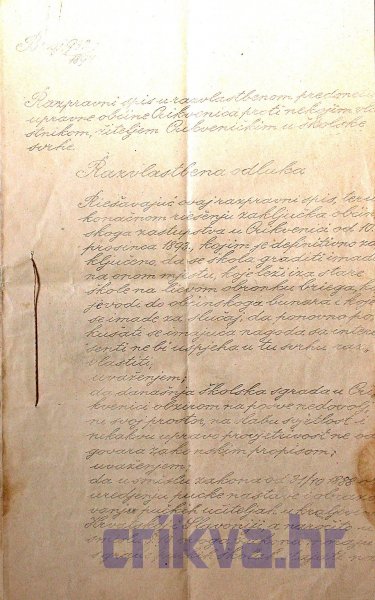 Razpravni spis u razvlastbenom predmetu
upravne obćine Crikvenica proti nekojim vla
stnikom, žiteljem Crikveničkim u školske
svrhe.
Razvlastbena odluka
Riešavajuć ovaj razpravni spis, te u
konačnom riešenju zaključka obćin
skoga zastupstva u Crikvenici od 10.
prosinca 1893, kojim je definitivno za
ključeno, da se škola graditi imade
na onom mjestu, koje leži iza stare
škole na lievom obronku briega, k
jevodi do obćinskoga bunara i koje
se imade za slučaj, da ponovno po
kušati se imajuća nagoda sa intere
senti ne bi uspjela u tu svrhu raz
vlastiti,
uvaženjem;
da današnja školska sgrada u Cri
kvenici obzirom na posve nedovolj
ni svoj prostor, na slabu svjetlost i
nikakvu upravo provjetrivost ne od
govara zakonskim propisom;
uvaženjem;
da u smislu zakona od 31/10 1888 o
uredjenju pučke nastave i obrazo
vanja pučkih učiteljah u kraljevi
crikva.hr